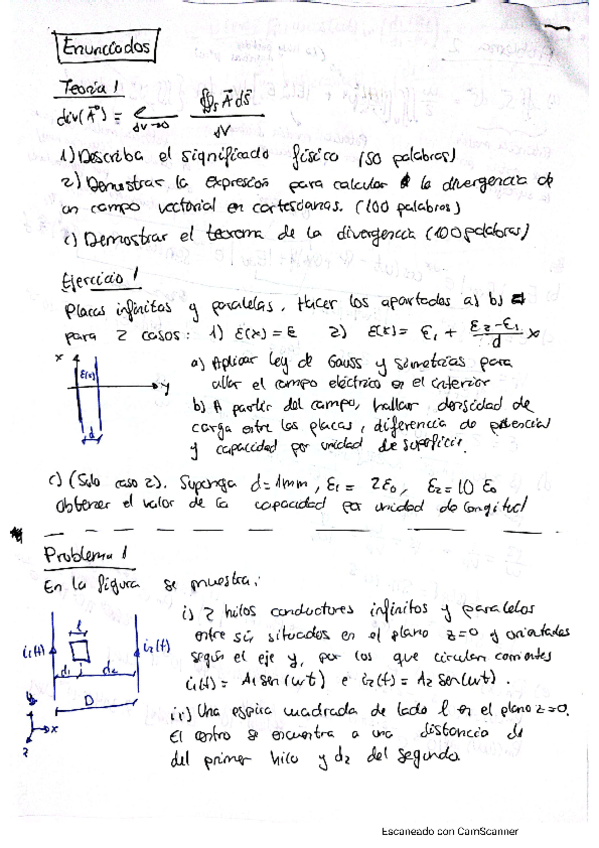 Enunciados
Teoría 1
div(A) = lim dv→0 ∯s A ds / dV
1) Describa el significado físico (50 palabras)
2) Demostrar la expresión para calcular la divergencia de
un campo vectorial en cartesianas. (100 palabras)
c) Demostrar el teorema de la divergencia (100 palabras)
Ejercicio 1
Placas infinitas y paralelas. Hacer los apartados a) b)
para 2 casos: 1) ε(x) = ε 2) ε(x) = ε1 + ε2-ε1/d x
x
ε(x)
y
d
a) Aplicar ley de Gauss y simetrías para
allar el campo eléctrico en el interior
b) A partir del campo, hallar densidad de
carga entre las placas, diferencia de potencial
y capacidad por unidad de superficie.
c) (Solo caso 2). Suponga d=1mm, ε1 = 2ε0, ε2=10 ε0
obtener el valor de la capacidad por unidad de longitud
Problema 1
En la figura se muestra:
i1(t)
l
i2(t)
d1
d2
D
y
x
z
i) 2 hilos conductores infinitos y paralelos
entre sí, situados en el plano z=0 y orientados
según el eje y, por los que circulan corrientes
i1(t) = A1 sen(wt) e i2(t) = A2 sen(wt).
ii) Una espira cuadrada de lado l en el plano z=0.
El centro se encuentra a una distancia d1
del primer hilo y d2 del segundo.
Escaneado con CamScanner